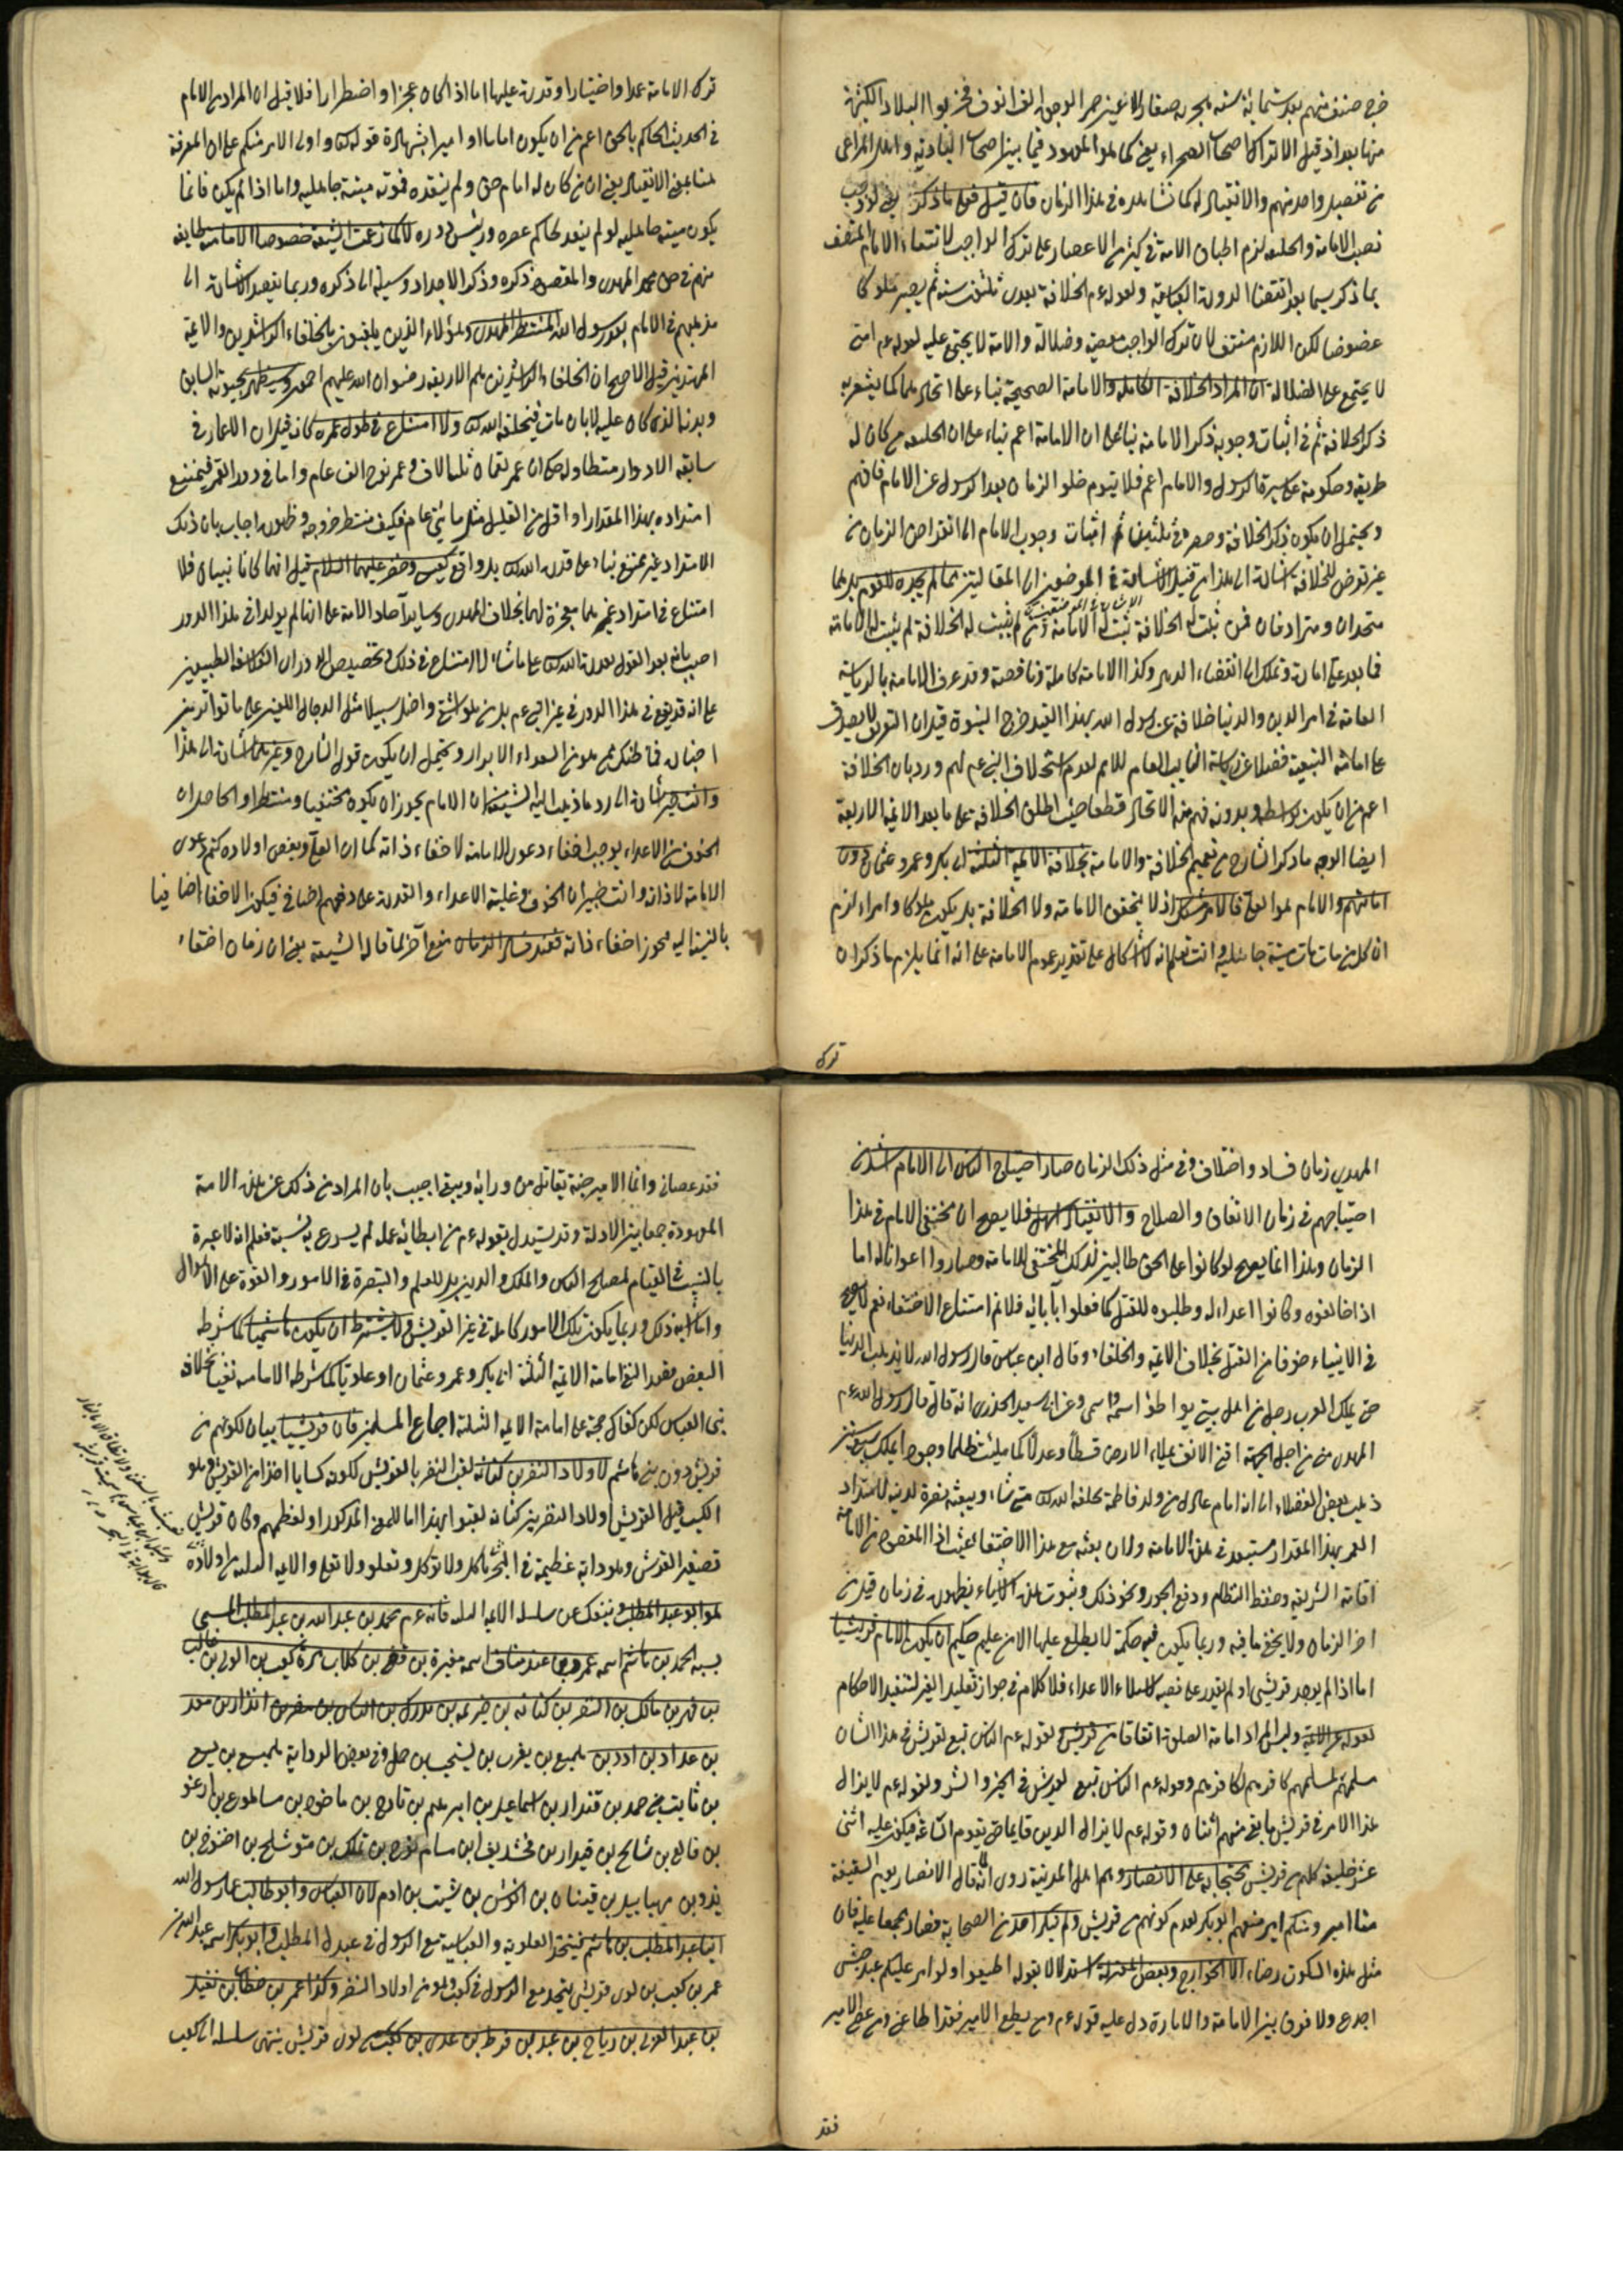 خرج صنف منهم بعد ستمائة سنة هجرية صغار الاعين حمر الوجوه الف انوف فخربوا البلاد الكثيرة
منها بغداد قيل الاتراك اصحاب الصحراء يعني كما هو المعهود فيما بين اصحاب البادية واهل المراعى
من تنصيب واحد منهم والانقياد له كما نشاهده في هذا الزمان فان قيل فعلى ما ذكر يعني لو وجب
نصب الامامة والخليفة لزم اطباق الامة في كثير من الاعصار على ترك الواجب لانتفاء الامام المتصف
بما ذكر سيما بعد انقضاء الدولة العباسية ولقوله عم الخلافة بعدى ثلثون سنة ثم يصير ملوكا
عضوضا لكن اللازم منتف لان ترك الواجب معصية وضلالة والامة لا يجتمع عليه لقوله عم امتى
لا يجتمع على الضلالة ان المراد الخلافة الكاملة والامامة الصحيحة بناء على اتحادهما كما يشعر به
ذكر الخلافة ثم في اثبات وجوبه ذكر الامامة بناء على ان الامامة اعم بناء على ان الخليفة من كان له
طريقة وحكومة على سيرة الرسول والامام اعم فلا يتوهم خلو الزمان بعد الرسول عن الامام فافهم
ويحتمل ان يكون ذكر الخلافة وحصره في ثلثين ثم اثبات وجوب الامام الى انقراض الزمان من
غير تعرض للخلافة اشارة الى هذا
متحدان ومترادفان فمن ثبت له الخلافة ثبت له الامامة ومن لم يثبت له الخلافة لم يثبت له الامامة
فما بعد على امارة وتملك الى انقضاء الدهر وكذا الامامة كاملة وناقصة وقد عرف الامامة بالرياسة
العامة في امر الدين والدنيا خلافة عن رسول الله بهذا القيد خرج النبوة قيل ان التعريف لا يصدق
على امامة التبعية فضلا عن رياسة النايب العام للامام لعدم استخلاف النبي عم لهم ورد بان الخلافة
اعم من ان يكون بواسطة وبدونه فهم منه الاتحاد قطعا حيث اطلق الخلافة على ما بعد الائمة الاربعة
ايضا الوجه ما ذكر الشارح من تعميم الخلافة والامامة بخلافة الائمة الثلثة ابى بكر وعمر وعثمان دون
امامتهم والامام هو العلم فالامر مشكل اذ لا يتحقق الامامة ولا الخلافة بل يكون ملوكا وامراء لزم
ان كل من مات مات ميتة جاهلية وانت تعلم انه لا اشكال على تقدير عموم الامامة على انه انما يلزم ما ذكر ان
ترك
ترك الامامة عمدا واختيارا وقدرة عليها اما اذا كان عجزا واضطرارا فلا قيل ان المراد من الامام
في الحديث الحاكم بالحق اعم من ان يكون اماما او اميرا بشهادة قوله تعالى واولى الامر منكم على ان المعرفة
هنا بمعنى الانقياد يعني ان من كان له امام حق ولم ينقده فموته ميتة جاهلية واما اذا لم يكن فانما
يكون ميتة جاهلية لو لم ينقد لحاكم عصره ورئيس دوره لا كما زعمت الشيعة خصوصا الامامية طايفة
منهم في حق محمد المهدى والمقصود ذكره وذكر الاجداد وسيلة الى ذكره وربما يقصد الاشارة الى
مذهبهم في الامام بعد رسول الله المنتظر المهدى وهؤلاء الذين يلقبون بالخلفاء الراشدين والائمة
المهتدين قيل الاصح ان الخلفاء الراشدين هم الاربعة رضوان الله عليهم اجمعين وسيظهر بحيوته السابق
وبدنه الذى كان عليه لا بان مات فيخلقه الله تعالى ولا امتناع في طول عمره كانه قيل ان الاعمار في
سابقة الادوار متطاولة حتى ان عمر لقمان ثلثة الاف وعمر نوح الف عام واما في دور القمر فيمتنع
امتداده بهذا المقدار او اقل من القليل مثل مائتي عام فكيف ينتظر خروجه وظهوره اجاب بان ذلك
الامتداد غير ممتنع بناء على قدرة الله تعالى بل واقع كعيسى وخضر عليهما السلام قيل انهما كانا نبيان فلا
امتناع في امتداد عمرهما معجزة لهما بخلاف المهدى وساير آحاد الامة على انهما لم يولدا في هذا الدور
اجيب بانه بعد القول بقدرة الله تعالى على ما شاء لا امتناع في ذلك وتخصيص الادوار ان الفلاسفة الطبيعين
على انه قد يقع في هذا الدور في غير النبي عم بل من هو اشنع واضل سبيلا مثل الدجال اللعين على ما تواتر بين
اخباره فما ظنك بمن هو من السعداء الابرار ويحتمل ان يكون قول الشارح وغيرهما اشارة الى هذا
وانت خبير اشارة الى رد ما ذهب اليه الشيعة من ان الامام يجوز ان يكون مختفيا ومنتظرا والحاصل ان
الخوف من الاعداء يوجب اخفاء دعوى الامامة لا خفاء ذاته كما ان العلم وبعض اولاده كتم دعوى
الامامة لا ذاته وانت خبير ان الخوف وغلبة الاعداء والقدرة على دفعهم اضافي فيكون الاخفاء اضافيا
بالنسبة اليه يجوز اخفاء ذاته فعند فساد الزمان منع آخر لما قاله الشيعة يعني ان زمان اختفاء
المهدى زمان فساد واختلاف وفي مثل ذلك الزمان صار احتياج الناس الى الامام اشد من
احتياجهم في زمان الاتفاق والصلاح والانقياد له اسهل فلا يصح ان مختفى الامام في هذا
الزمان وهذا انما يصح لو كانوا على الحق طالبين لذلك المختفى للامامة وصاروا اعوانا له اما
اذا خالفوه وكانوا اعداء له وطلبوه للقتل كما فعلوا بآبائه فلا نم امتناع الاختفاء نعم لا يصح
في الانبياء خوفا من القتل بخلاف الائمة والخلفاء وقال ابن عباس قال رسول الله لا يذهب الدنيا
حتى يملك العرب رجل من اهل بيتى يواطئ اسمه اسمى وعن ابى سعيد الخدرى انه قال قال رسول الله عم
المهدى منى من اجلى الجبهة اقنى الانف يملاء الارض قسطا وعدلا كما ملئت ظلما وجورا يملك سبع سنين
ذهب بعض الفضلاء الى انه امام عادل من ولد فاطمة يخلقه الله تعالى متى شاء ويبعثه نصرة لدينه لامتداد
العمر بهذا المقدار مستبعد في هذه الامامة ولان بعثه مع هذا الاختفاء عبث اذ المقصود من الامامة
اقامة الشريعة وحفظ النظام ودفع الجور ونحو ذلك وثبوت هذه الاشياء بظهوره في زمان قيل من
اخر الزمان ولا يخفى ما فيه وربما يكون فيه حكمة لا يطلع عليها الا من عليم حكيم ان يكون الامام قريشيا
اما اذا لم يوجد قريشى او لم يقدر على نصبه لاستيلاء الاعداء فلا كلام في جواز تقليد الغير لتنفيذ الاحكام
لقوله عم الائمة وليس المراد امامة الصلوة اتفاقا من قريش لقوله عم الناس تبع لقريش في هذا الشان
مسلمهم لمسلمهم كافرهم لكافرهم وقوله عم الناس تبع لقريش في الخير والشر ولقوله عم لا يزال
هذا الامر في قريش ما بقى منهم اثنان وقوله عم لا يزال الدين قايما حتى يقوم الساعة فيكون عليه اثنى
عشر خليفة كلهم من قريش محتجا به على الانصار وهم اهل المدينة روى انه لما قال الانصار يوم السقيفة
منا امير ومنكم امير منعهم ابو بكر لعدم كونهم من قريش ولم ينكر احد من الصحابة فصار مجمعا عليه فان
مثل هذه السكوت رضاء الا الخوارج وبعض المعتزلة استدلالا بقوله اطيعوا ولو امر عليكم عبد حبشى
اجدع ولا فرق بين الامامة والامارة دل عليه قوله عم ومن يطع الامير فقد اطاعنى ومن عصى الامير
فقد
فقد عصانى وانما الامير جنة يقاتل من ورائه ويتقى اجيب بان المراد من ذلك غير هذه الامامة
المعهودة جمعا بين الادلة وقد يستدل بقوله عم من ابطائه عمله لم يسرع به نسبه فعلم انه لا عبرة
بالنسب في القيام لمصالح الناس والملك والدين بل للعلم والبصرة في الامور والقوة على الاحوال
وامثال ذلك وربما يكون تلك الامور كاملة في غير القريش ولا يشترط ان يكون هاشميا كما شرطه
البعض مقصد النفي امامة الائمة الثلثة ابى بكر وعمر وعثمان او علويا كما شرطه الامامية نفيا لخلافة
بنى العباس لكن كفاك حجة على امامة الائمة الثلثة اجماع المسلمين فان قريشيا بيان لكونهم من
قريش دون بنى هاشم لاولاد النضر بن كنانة لقب النضر بالقريش لكونه كسابا اخذا من القرش وهو
الكسب قيل القريش اولاد النضر بن كنانة لقبوا بهذا اما للمعنى المذكور او لعظمهم وكان قريش
تصغير القرش وهو دابة عظيمة في البحر تاكل ولا توكل وتعلو ولا تعلى والائمة الثلثة من اولاده
هو ابو عبد المطلب وينبئك عن سلسلة الائمة الثلثة فانه عم محمد بن عبد الله بن عبد المطلب المسمى
بشيبة الحمد بن هاشم اسمه عمرو بن عبد مناف اسمه مغيرة بن قصى بن كلاب بن مرة بن كعب بن لوى بن غالب
بن فهر بن مالك بن النضر بن كنانة بن خزيمة بن مدركة بن الياس بن مضر بن نزار بن معد
بن عدنان بن ادد بن هميسع بن يعرب بن يشجب بن حمل وفي بعض الرواية هميسع بن يسع
بن ثابت بن حمد بن قيدار بن اسماعيل بن ابرهيم بن تارح بن ناحور بن ساروع بن ارغو
بن فالع بن شالح بن قينان بن ارفخشد بن سام بن نوح بن لمك بن متوشلح بن اخنوخ بن
يرد بن مهيايل بن قينان بن انوش بن شيث بن ادم لان العباس وابو طالب عما رسول الله
ابنا عبد المطلب بن هاشم فيتحد العلوية والعباسية مع الرسول في عبد المطلب وابو بكر اسمه عبد الله بن
عمر بن كعب بن لوى قريش يتحد مع الرسول في كعب وهو من اولاد النضر وكذا عمر بن خطاب بن نفيل
بن عبد العزى بن رياح بن عبد الله بن قرط بن عدى بن كعب بن لوى قريش ينتهى سلسلة الى كعب